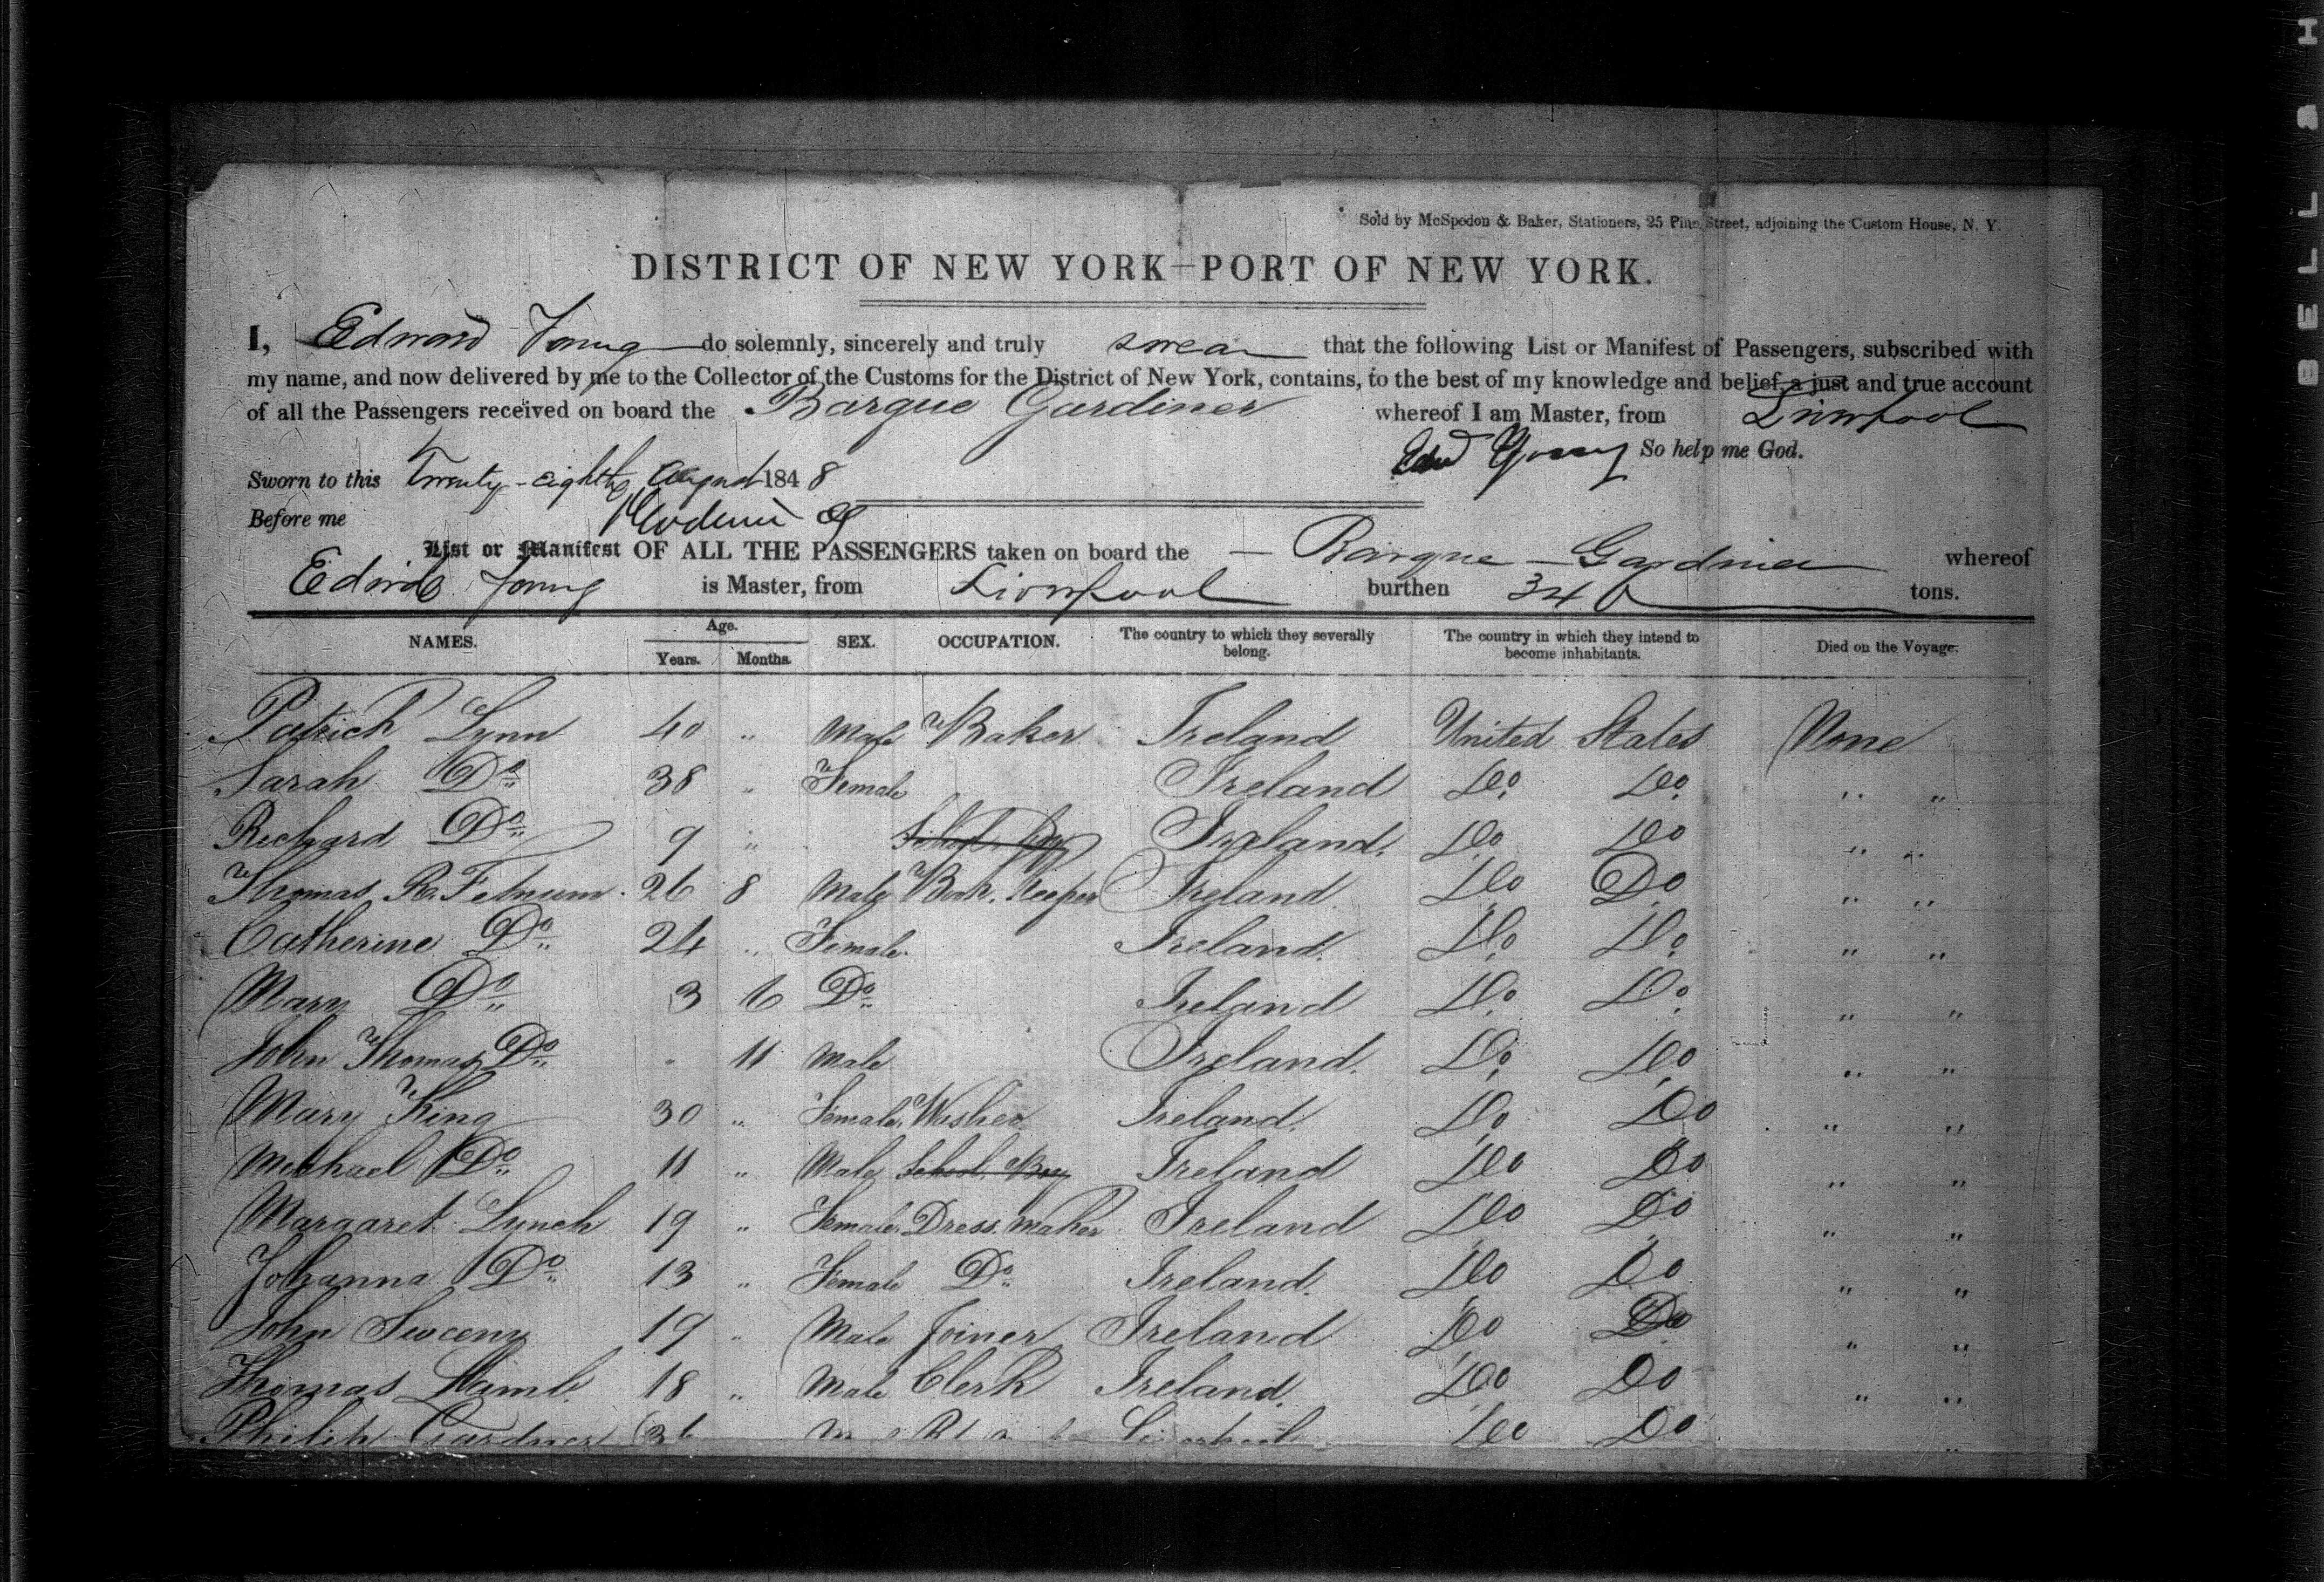 Sold by McSpedon & Baker, Stationers, 25 Pine Street, adjoining the Custom House, N. Y.
DISTRICT OF NEW YORK—PORT OF NEW YORK.
I, Edward Young do solemnly, sincerely and truly swear that the following List or Manifest of Passengers, subscribed with
my name, and now delivered by me to the Collector of the Customs for the District of New York, contains, to the best of my knowledge and belief, a just and true account
of all the Passengers received on board the Barque Gardiner whereof I am Master, from Liverpool
Edw Young So help me God.
Sworn to this Twenty-eighth August 1848
Before me
List or Manifest OF ALL THE PASSENGERS taken on board the — Barque — Gardiner whereof
Edward Young is Master, from Liverpool burthen 340 tons.
NAMES. Age. Years. Months. SEX. OCCUPATION. The country to which they severally belong. The country in which they intend to become inhabitants. Died on the Voyage.
Patrick Lynn 40 " Male Baker Ireland United States None
Sarah Do 38 " Female Ireland Do Do " "
Richard Do 9 " School Boy Ireland. Do Do " "
Thomas R. 26 8 Male Book Keeper Ireland. Do Do " "
Catherine Do 24 " Female Ireland. Do Do " "
Mary Do 3 6 Do Ireland Do Do " "
John Thomas Do " 11 Male Ireland. Do Do " "
Mary King 30 " Female Ireland. Do Do " "
Michael Do 11 " Male School Boy Ireland Do Do " "
Margaret Lynch 19 " Female Dress Maker Ireland Do Do " "
Johanna Do 13 " Female Do Ireland. Do Do " "
John Sweeny 19 " Male Joiner Ireland Do Do " "
Thomas Lamb. 18 " Male Clerk Ireland. Do Do " "
Philip Gardner 36 Liverpool Do Do
BELL & H